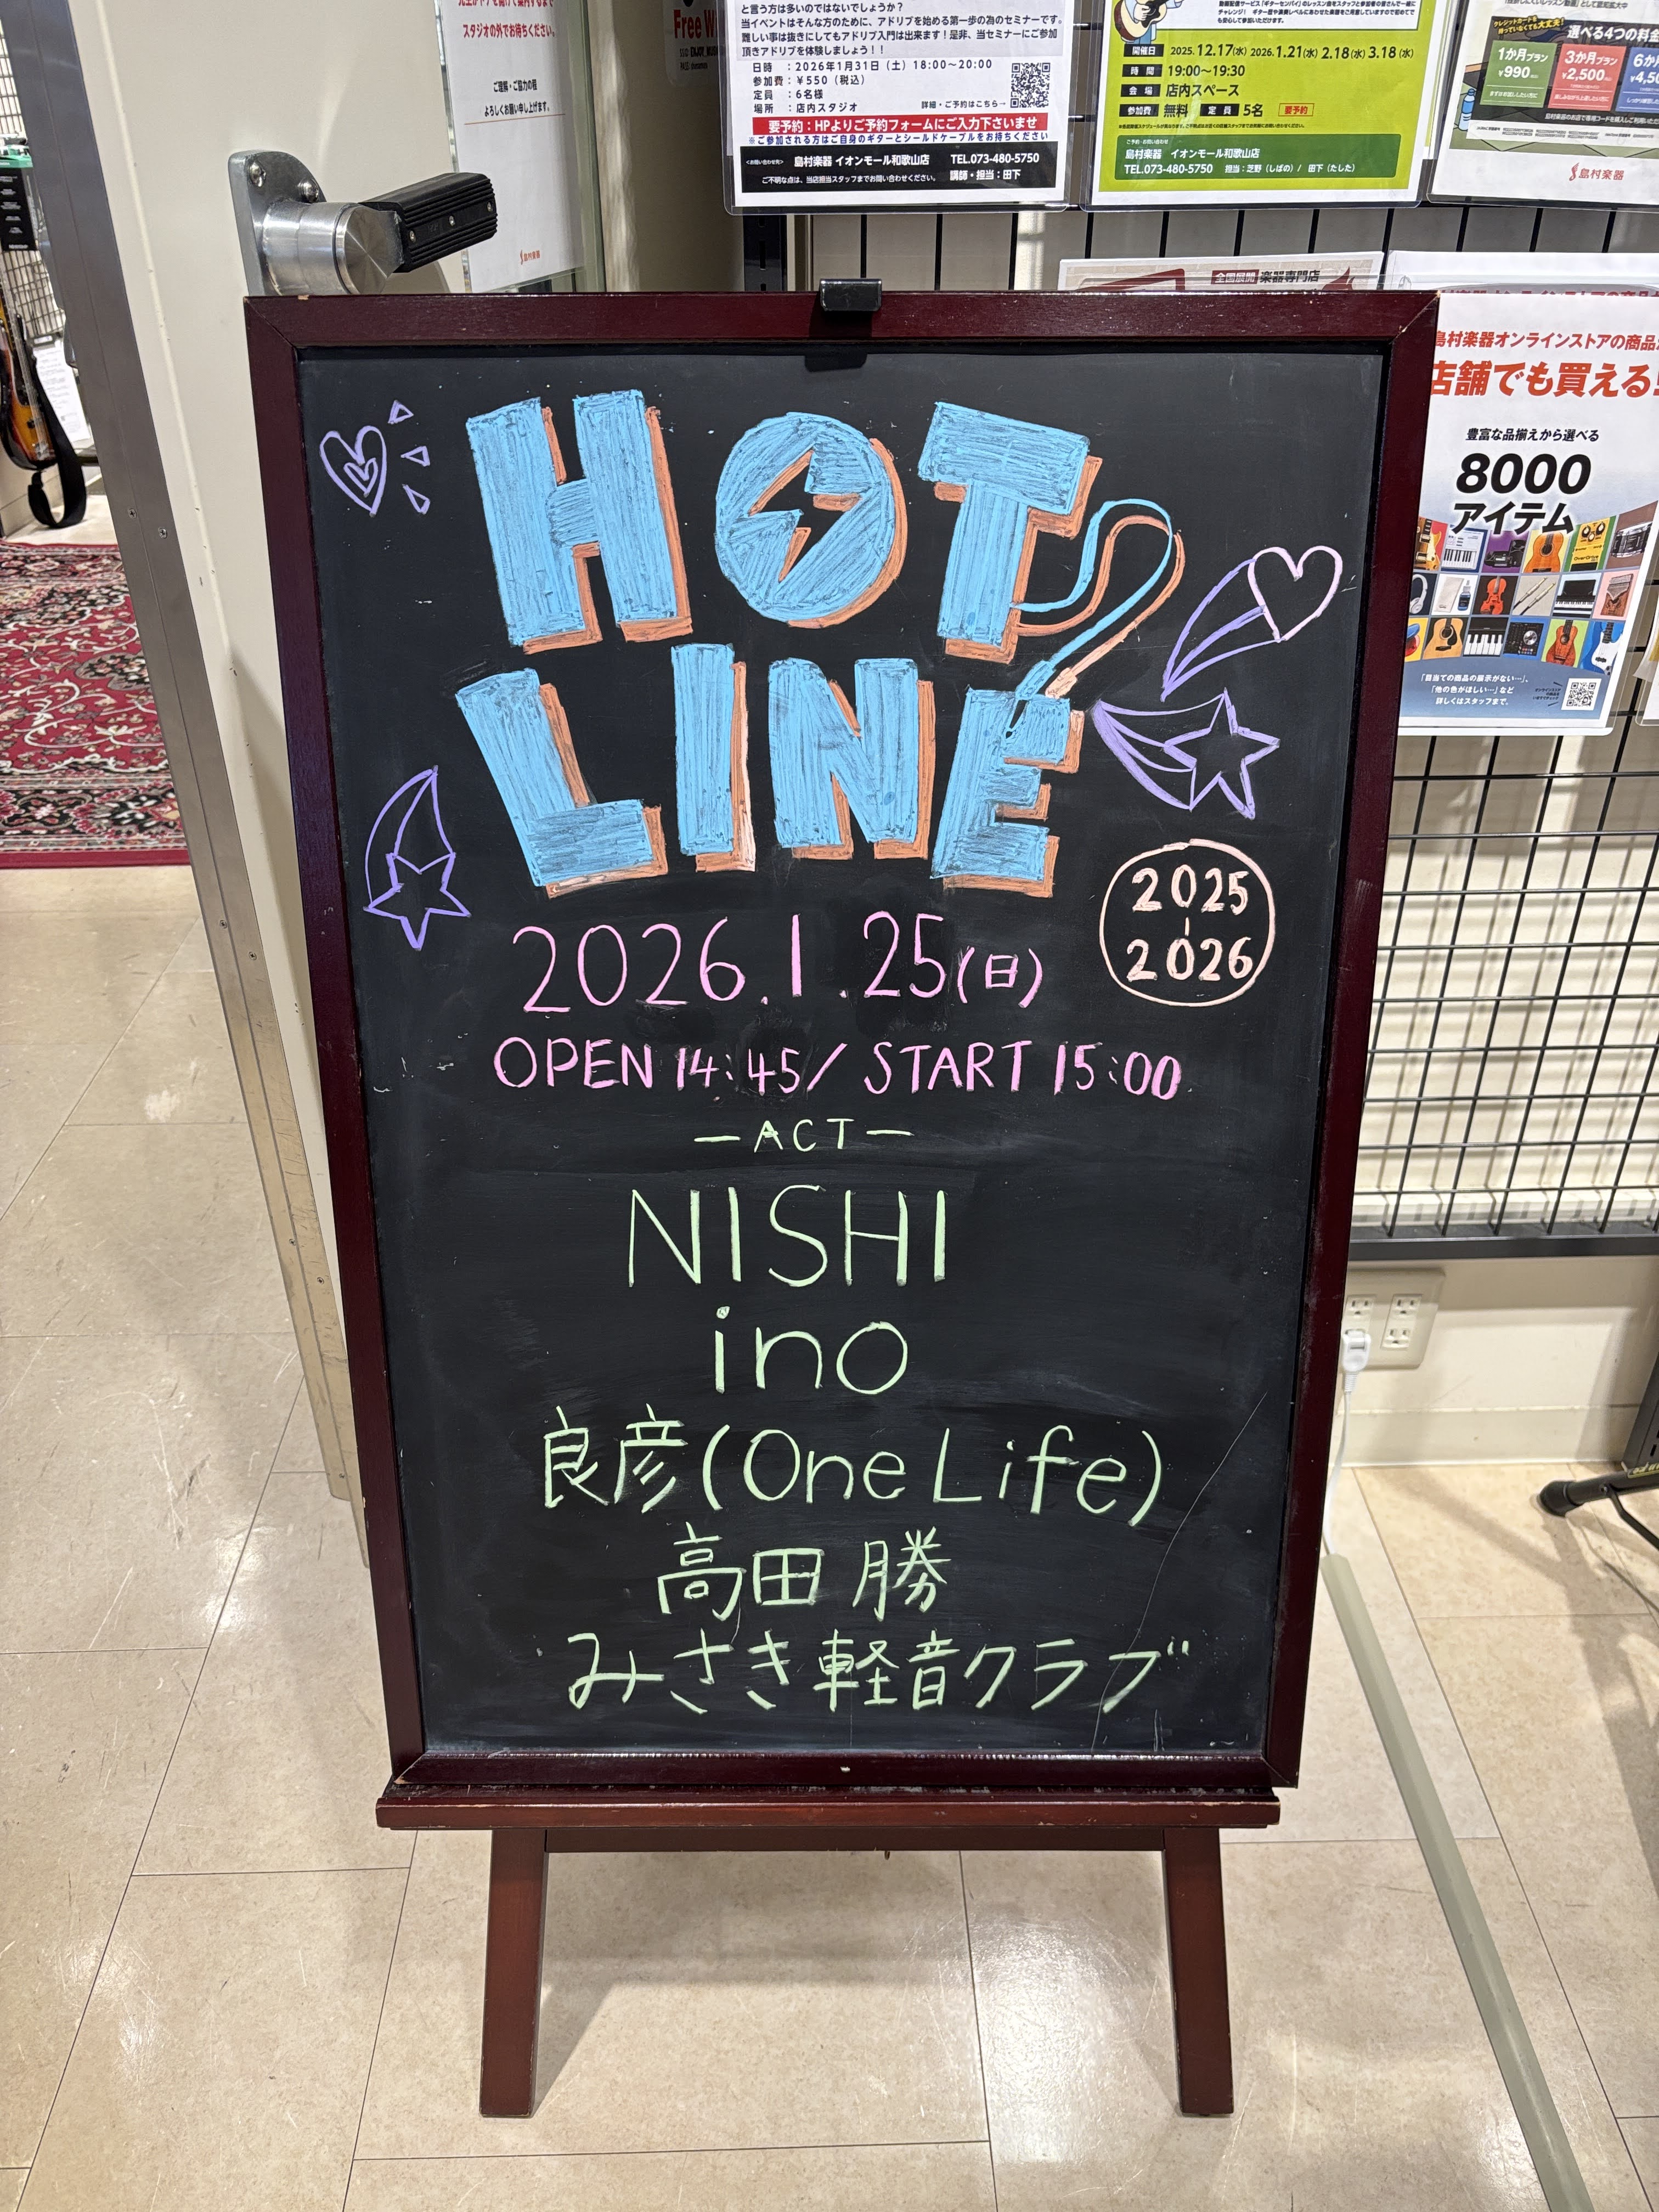 スタジオの外でお待ちください。
ご理解・ご協力の程
よろしくお願い申し上げます。
島村楽器
Free W
と言う方は多いのではないでしょうか？
当イベントはそんな方のために、アドリブを始める第一歩の為のセミナーです。
難しい事は抜きにしてもアドリブ入門は出来ます！是非、当セミナーにご参加
頂きアドリブを体験しましょう！！
日時 ：2026年1月31日（土）18:00～20:00
参加費：￥550（税込）
定員 ：6名様
場所 ：店内スタジオ
詳細・ご予約はこちら→
要予約：HPよりご予約フォームにご入力下さいませ
※ご参加される方はご自身のギターとシールドケーブルをお持ちください
<お問い合わせ先> 島村楽器 イオンモール和歌山店 TEL.073-480-5750
ご不明な点は、当店担当スタッフまでお問い合わせください。 講師・担当：田下
開催日 2025.12.17(水) 2026.1.21(水) 2.18(水) 3.18(水)
時間 19:00～19:30
会場 店内スペース
参加費 無料 定員 5名 要予約
ご予約・お問い合わせ
島村楽器 イオンモール和歌山店
TEL.073-480-5750 担当：芝野（しばの）/ 田下（たした）
選べる4つの料金
1か月プラン
¥990
3か月プラン
¥2,500
6か月
¥4,50
島村楽器
全国展開 楽器専門店
島村楽器オンラインストアの商品が
店舗でも買える!
豊富な品揃えから選べる
8000
アイテム
「目当ての商品の展示がない…」、
「他の色がほしい…」など
詳しくはスタッフまで。
HOT
LINE
2025
-
2026
2026.1.25(日)
OPEN 14:45/ START 15:00
—ACT—
NISHI
ino
良彦(One Life)
高田 勝
みさき軽音クラブ